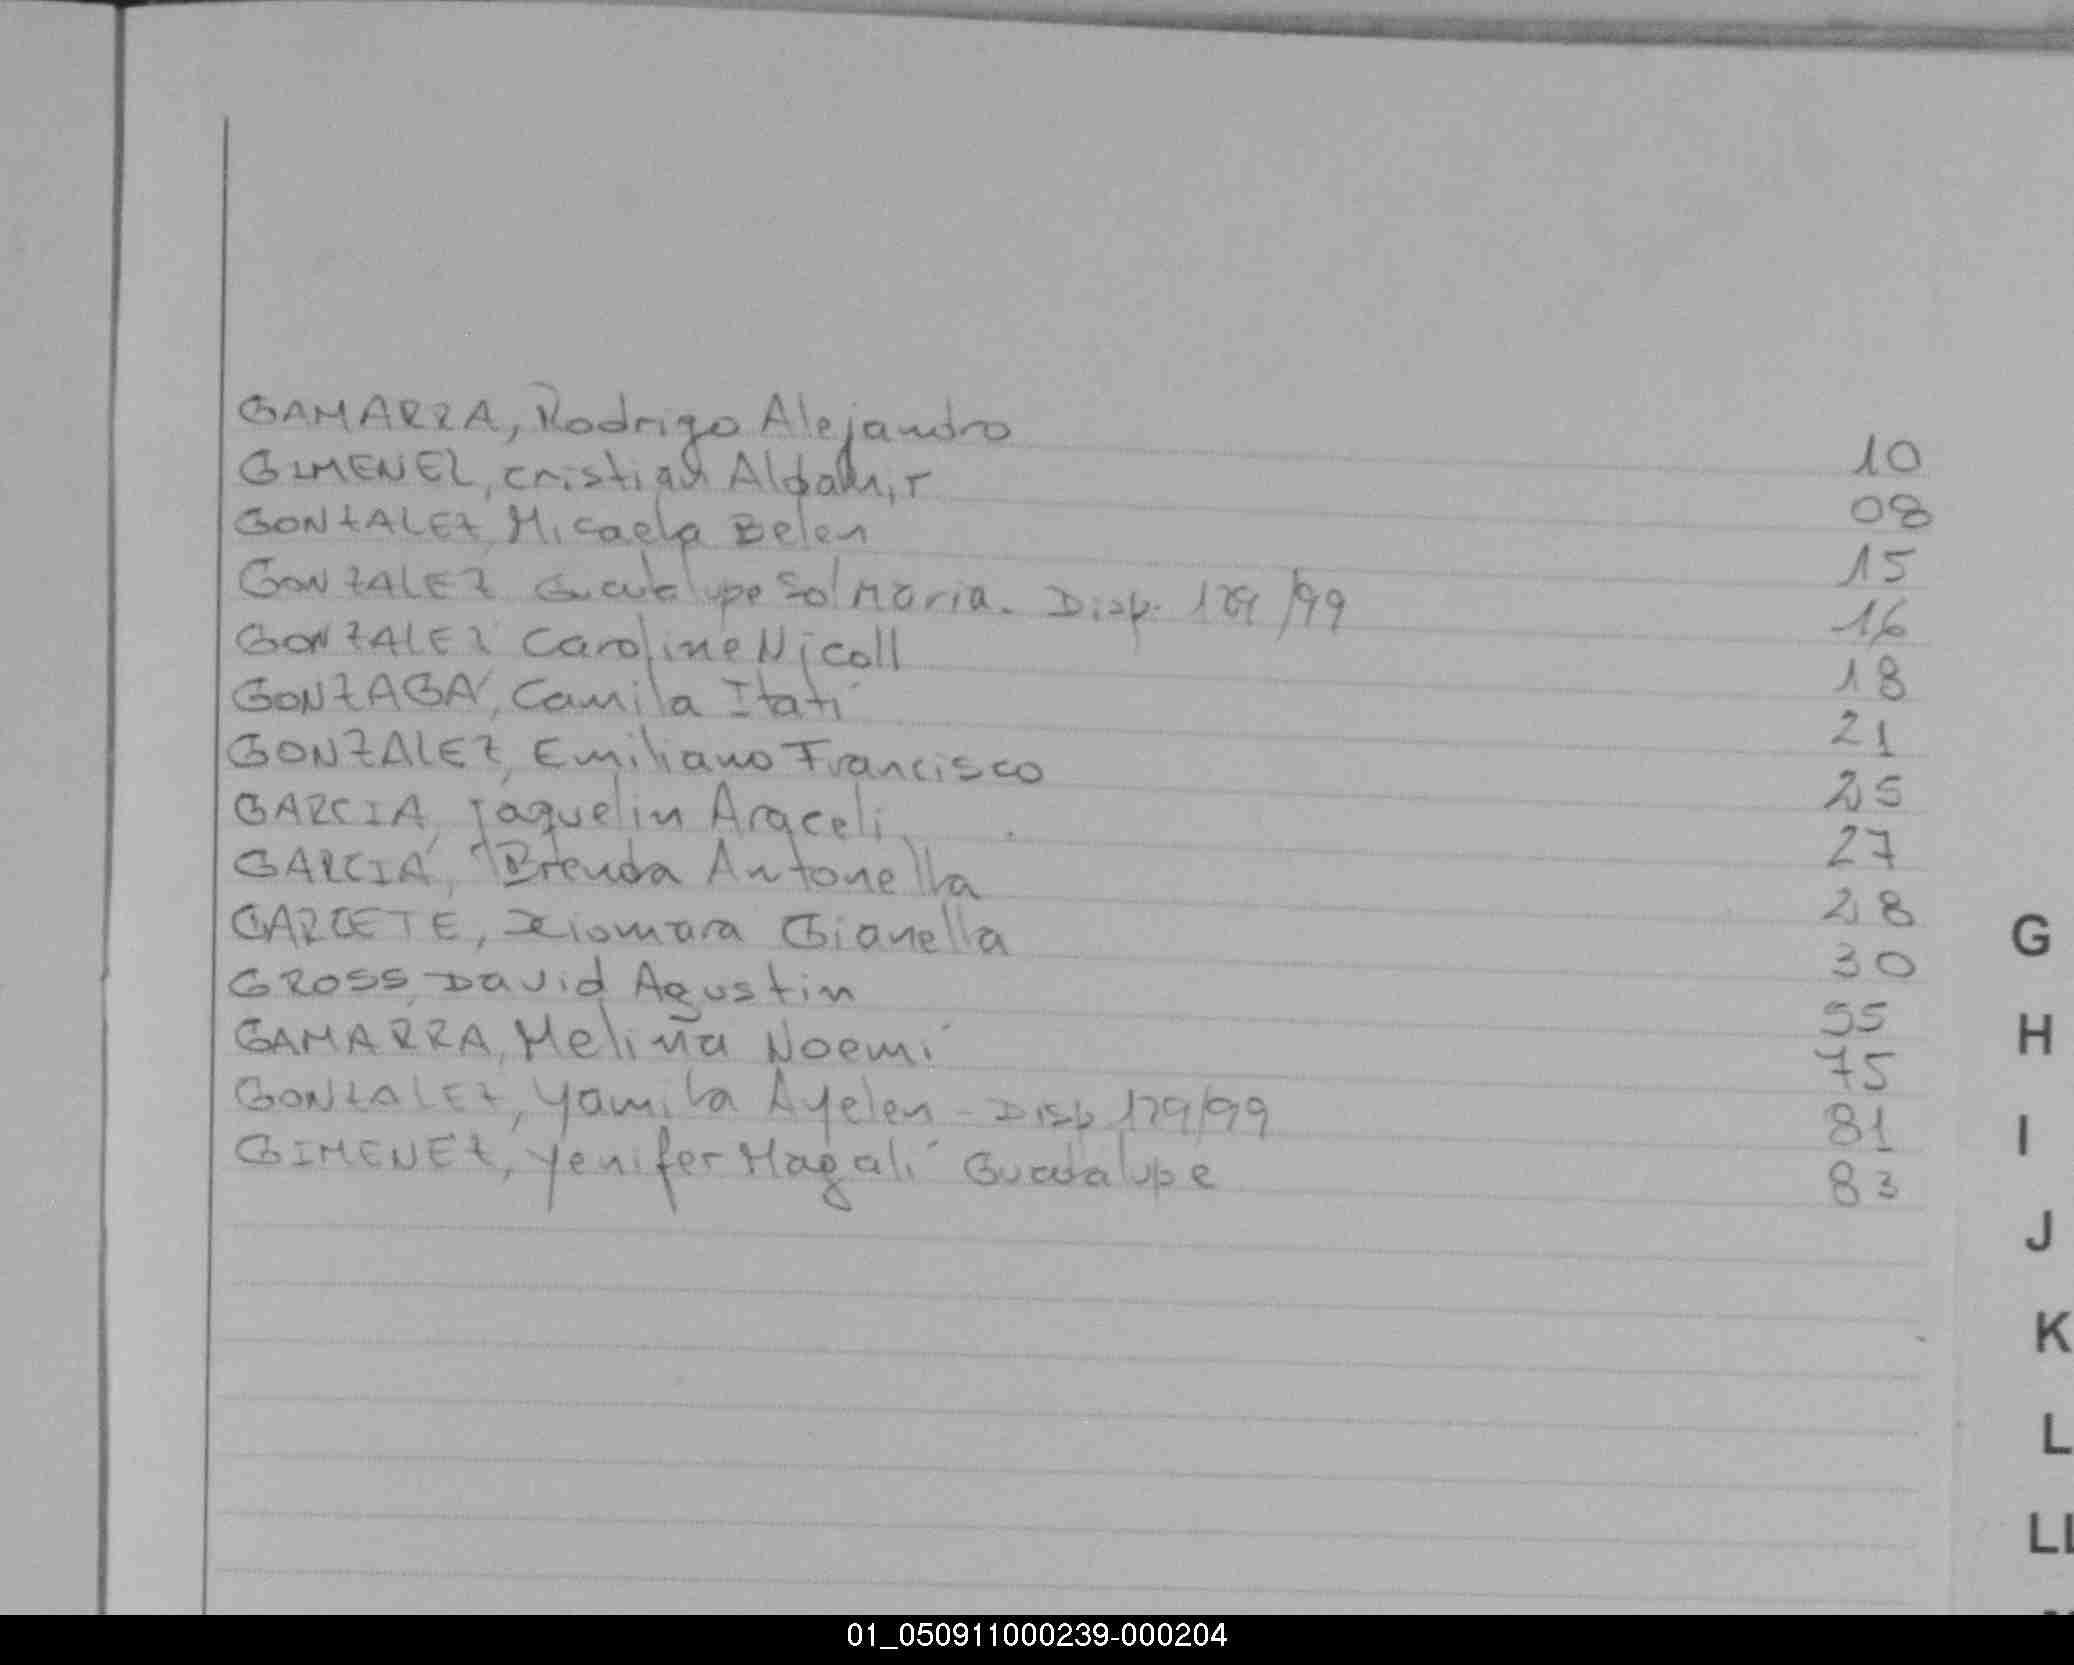 GAMARRA, Rodrigo Alejandro 10
GIMENEZ, Cristian Aldamir 08
GONZALEZ, Micaela Belen 15
GONZALEZ Guadalupe Sol Maria. Disp. 179/99 16
GONZALEZ Caroline Nicoll 18
GONZAGA, Camila Itatí 21
GONZALEZ, Emiliano Francisco 25
GARCIA, Jaquelin Araceli 27
GARCIA, Brenda Antonella 28
GARCETE, Xiomara Gianella 30
GROSS, David Agustin 55
GAMARRA, Melina Noemí 75
GONZALEZ, Yamila Ayelen - Disp 179/99 81
GIMENEZ, Yenifer Magalí Guadalupe 83
G
H
I
J
K
L
LL
01_050911000239-000204